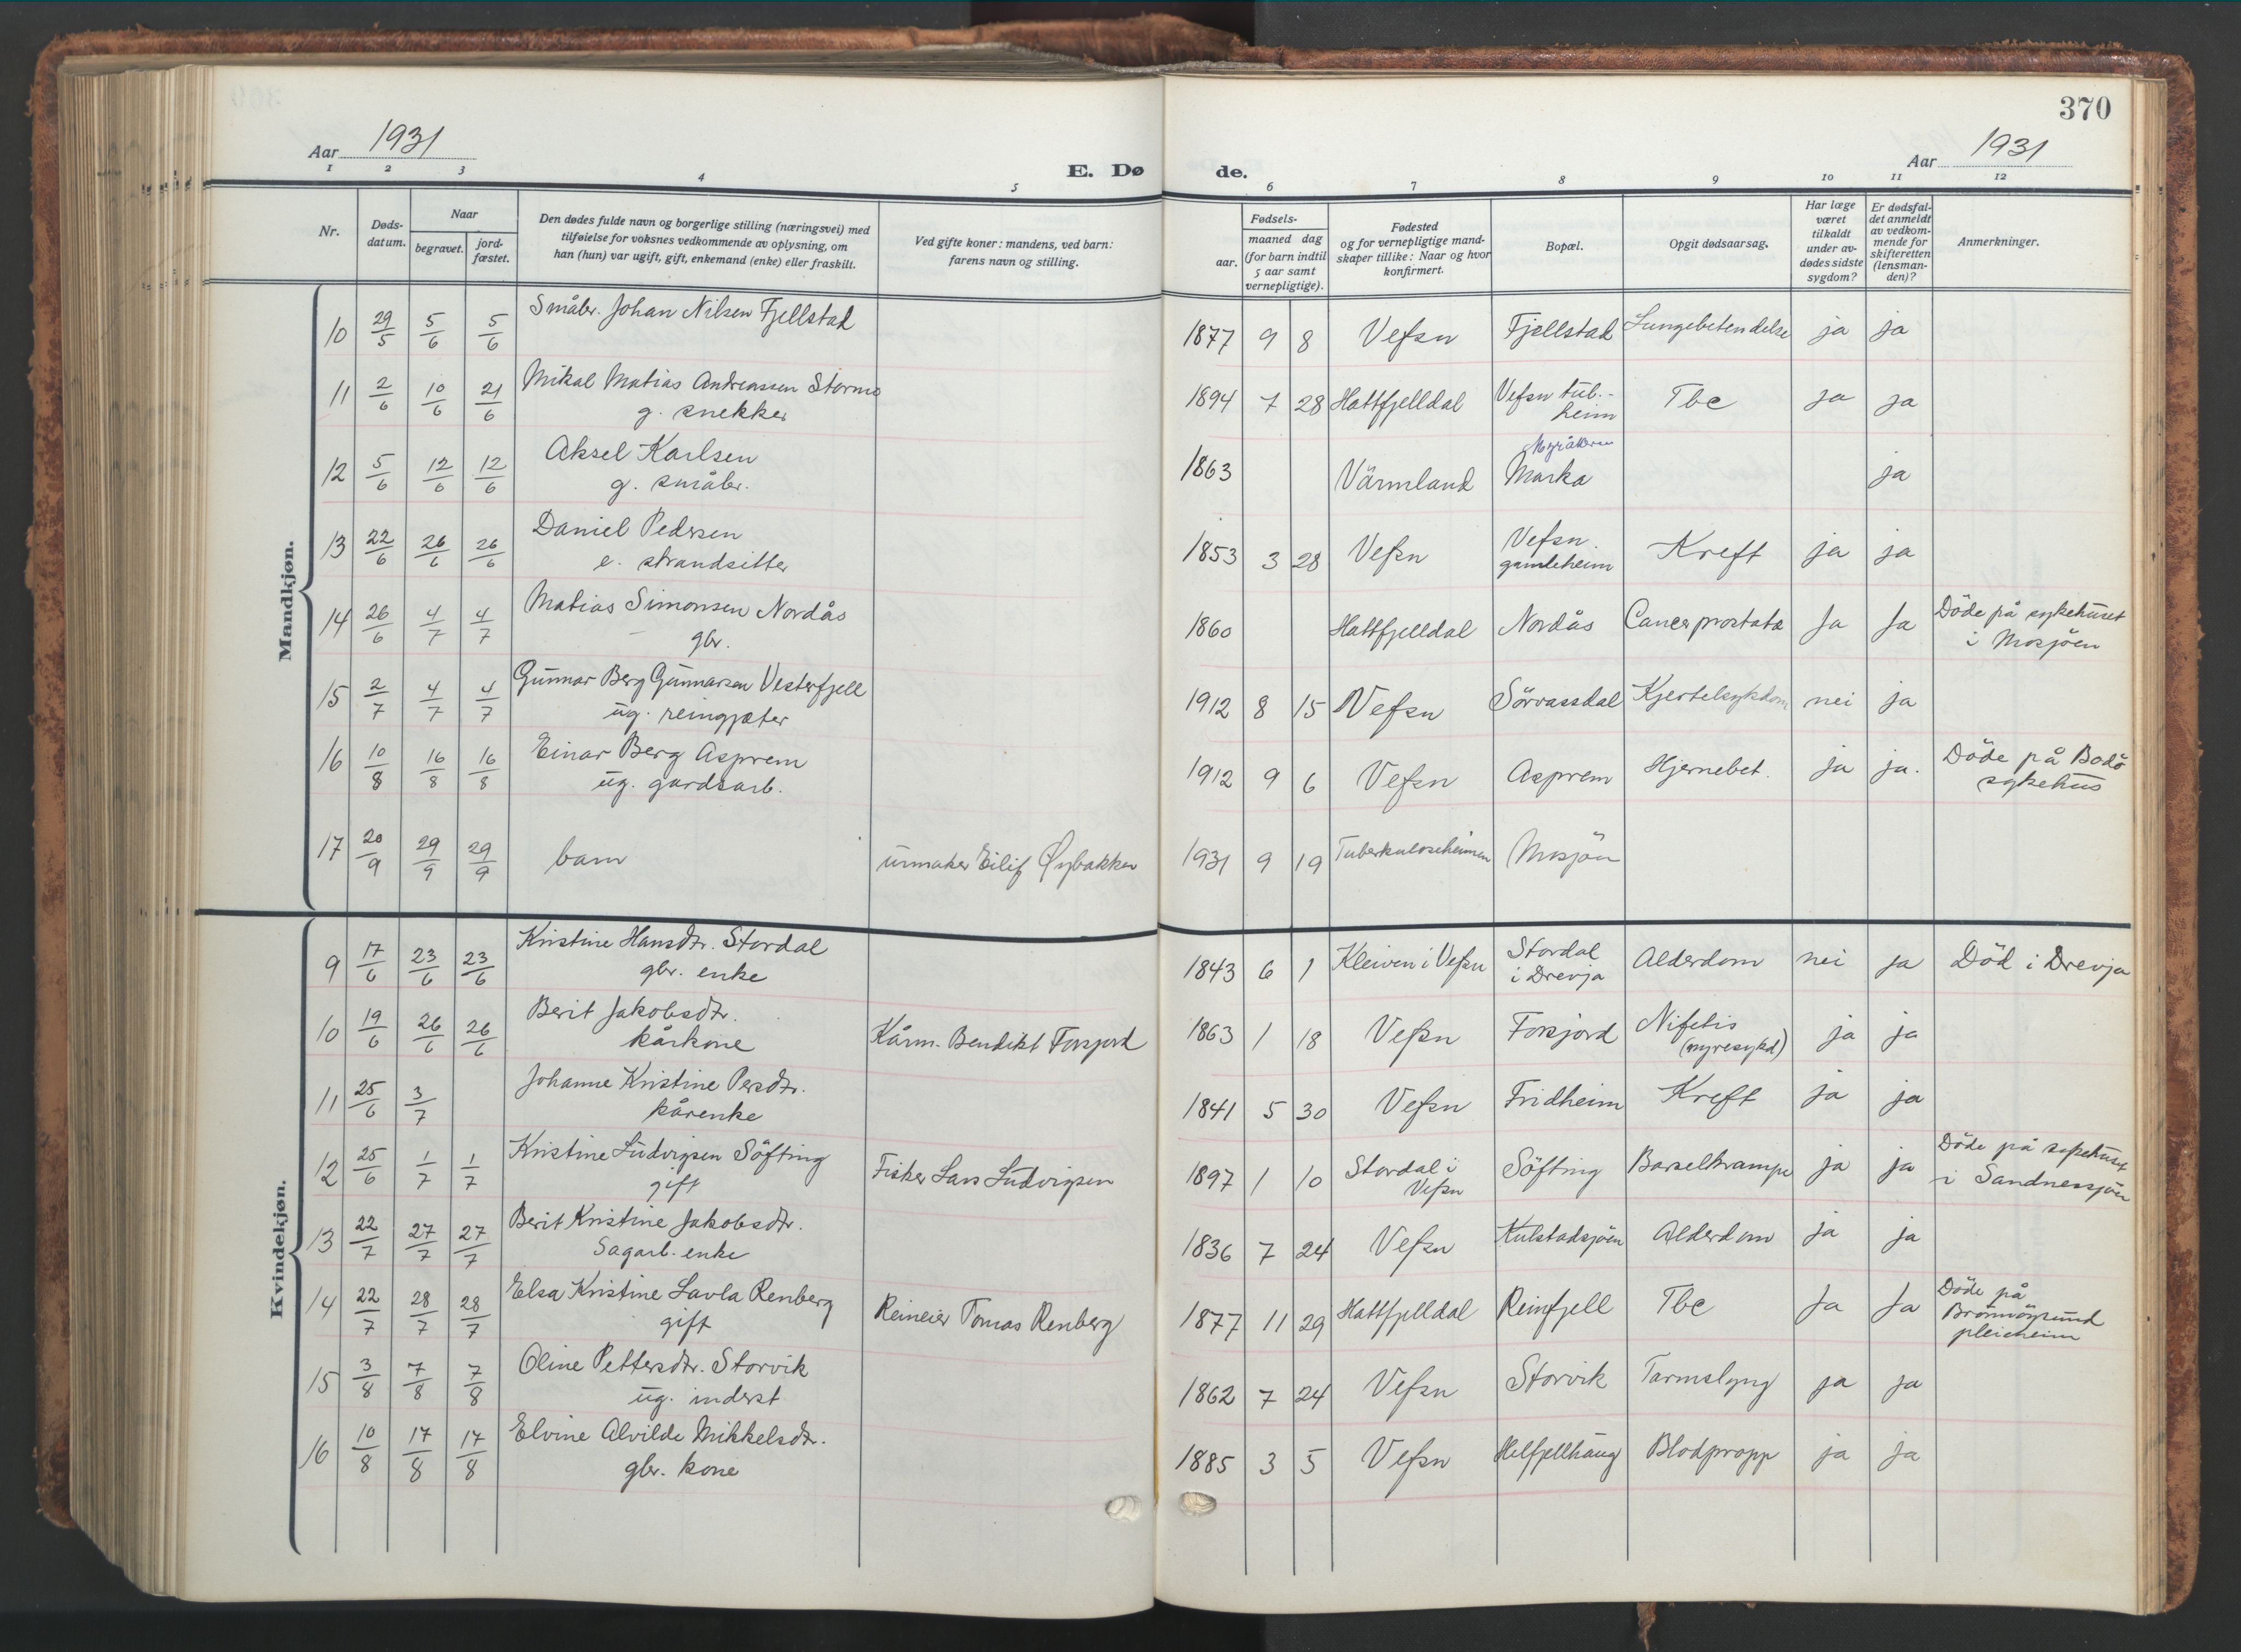 370
Aar 1931
E. Døde.
Aar 1931
1 2 3 4 5 6 7 8 9 10 11 12
Nr.
Døds-datum.
Naar
begravet.
jord-fæstet.
Den dødes fulde navn og borgerlige stilling (næringsvei) med
tilføielse for voksnes vedkommende av oplysning, om
han (hun) var ugift, gift, enkemand (enke) eller fraskilt.
Ved gifte koner: mandens, ved barn:
farens navn og stilling.
Fødsels-
aar.
maaned dag
(for barn indtil
5 aar samt
vernepligtige).
Fødested
og for vernepligtige mand-
skaper tillike: Naar og hvor
konfirmert.
Bopæl.
Opgit dødsaarsag.
Har læge
været
tilkaldt
under av-
dødes sidste
sygdom?
Er dødsfal-
det anmeldt
av vedkom-
mende for
skifteretten
(lensman-
den)?
Anmerkninger.
Mandkjøn.
10 29/5 5/6 5/6 Småbr. Johan Nilsen Fjellstad 1877 9 8 Vefsn Fjellstad Lungebetendelse ja ja
11 2/6 10/6 21/6 Mikal Matias Andreassen Stormo 1894 7 28 Hattfjelldal Vefsn tub.- Tbc ja ja
g. snekker heim
Aksel Karlsen Myråkeren
12 5/6 12/6 12/6 g. småbr. 1863 Värmland Marka ja
13 22/6 26/6 26/6 Daniel Pedersen 1853 3 28 Vefsn Vefsn Kreft ja ja
e. strandsitter gamleheim
14 26/6 4/7 4/7 Matias Simonsen Nordås 1860 Hattfjelldal Nordås Cancer prostata Ja Ja Döde på sykehuset
gbr. i Mosjöen
15 2/7 4/7 4/7 Gunnar Berg Gunnarsen Vesterfjell 1912 8 15 Vefsn Sörvassdal Kjertelsykdom nei ja
ug. reingjæter
16 10/8 16/8 16/8 Einar Berg Asprem 1912 9 6 Vefsn Asprem Hjernebet. ja ja. Döde på Bodö
ug. gardsarb. sykehus
17 20/9 29/9 29/9 barn urmaker Eilif Øybakken 1931 9 19 Tuberkuloseheimen Mosjön
Kvindekjøn.
9 17/6 23/6 23/6 Kristine Hansdtr. Stordal 1843 6 1 Kleiven i Vefsn Stordal Alderdom nei ja Död i Drevja
gbr. enke i Drevja
10 19/6 26/6 26/6 Berit Jakobsdtr. Kårm. Bendikt Forsjord 1863 1 18 Vefsn Forsjord Nifitis ja ja
kårkone (nyresykd)
11 25/6 3/7 Johanne Kristine Persdtr. 1841 5 30 Vefsn Fridheim Kreft ja ja
kårenke
12 25/6 1/7 1/7 Kristine Ludvigsen Söfting Fisker Lars Ludvigsen 1897 1 10 Stordal i Söfting Barselkrampe ja ja Döde på sykehuset
gift Vefsn i Sandnessjöen
13 22/7 27/7 27/7 Berit Kristine Jakobsdtr. 1836 7 24 Vefsn Kulstadsjöen Alderdom ja ja
Sagarb. enke
14 22/7 28/7 28/7 Elsa Kristine Lavla Renberg Reineier Tomas Renberg 1877 11 29 Hattfjelldal Reinfjell Tbc Ja Ja Döde på
gift Brönnöysund
pleieheim
15 3/8 7/8 7/8 Oline Pettersdtr. Storvik 1862 7 24 Vefsn Storvik Tarmslyng ja ja
ug. inderst
16 10/8 17/8 17/8 Elvine Alvilde Mikkelsdtr. 1885 3 5 Vefsn Helfjellhaug Blodpropp ja ja
gbr. kone